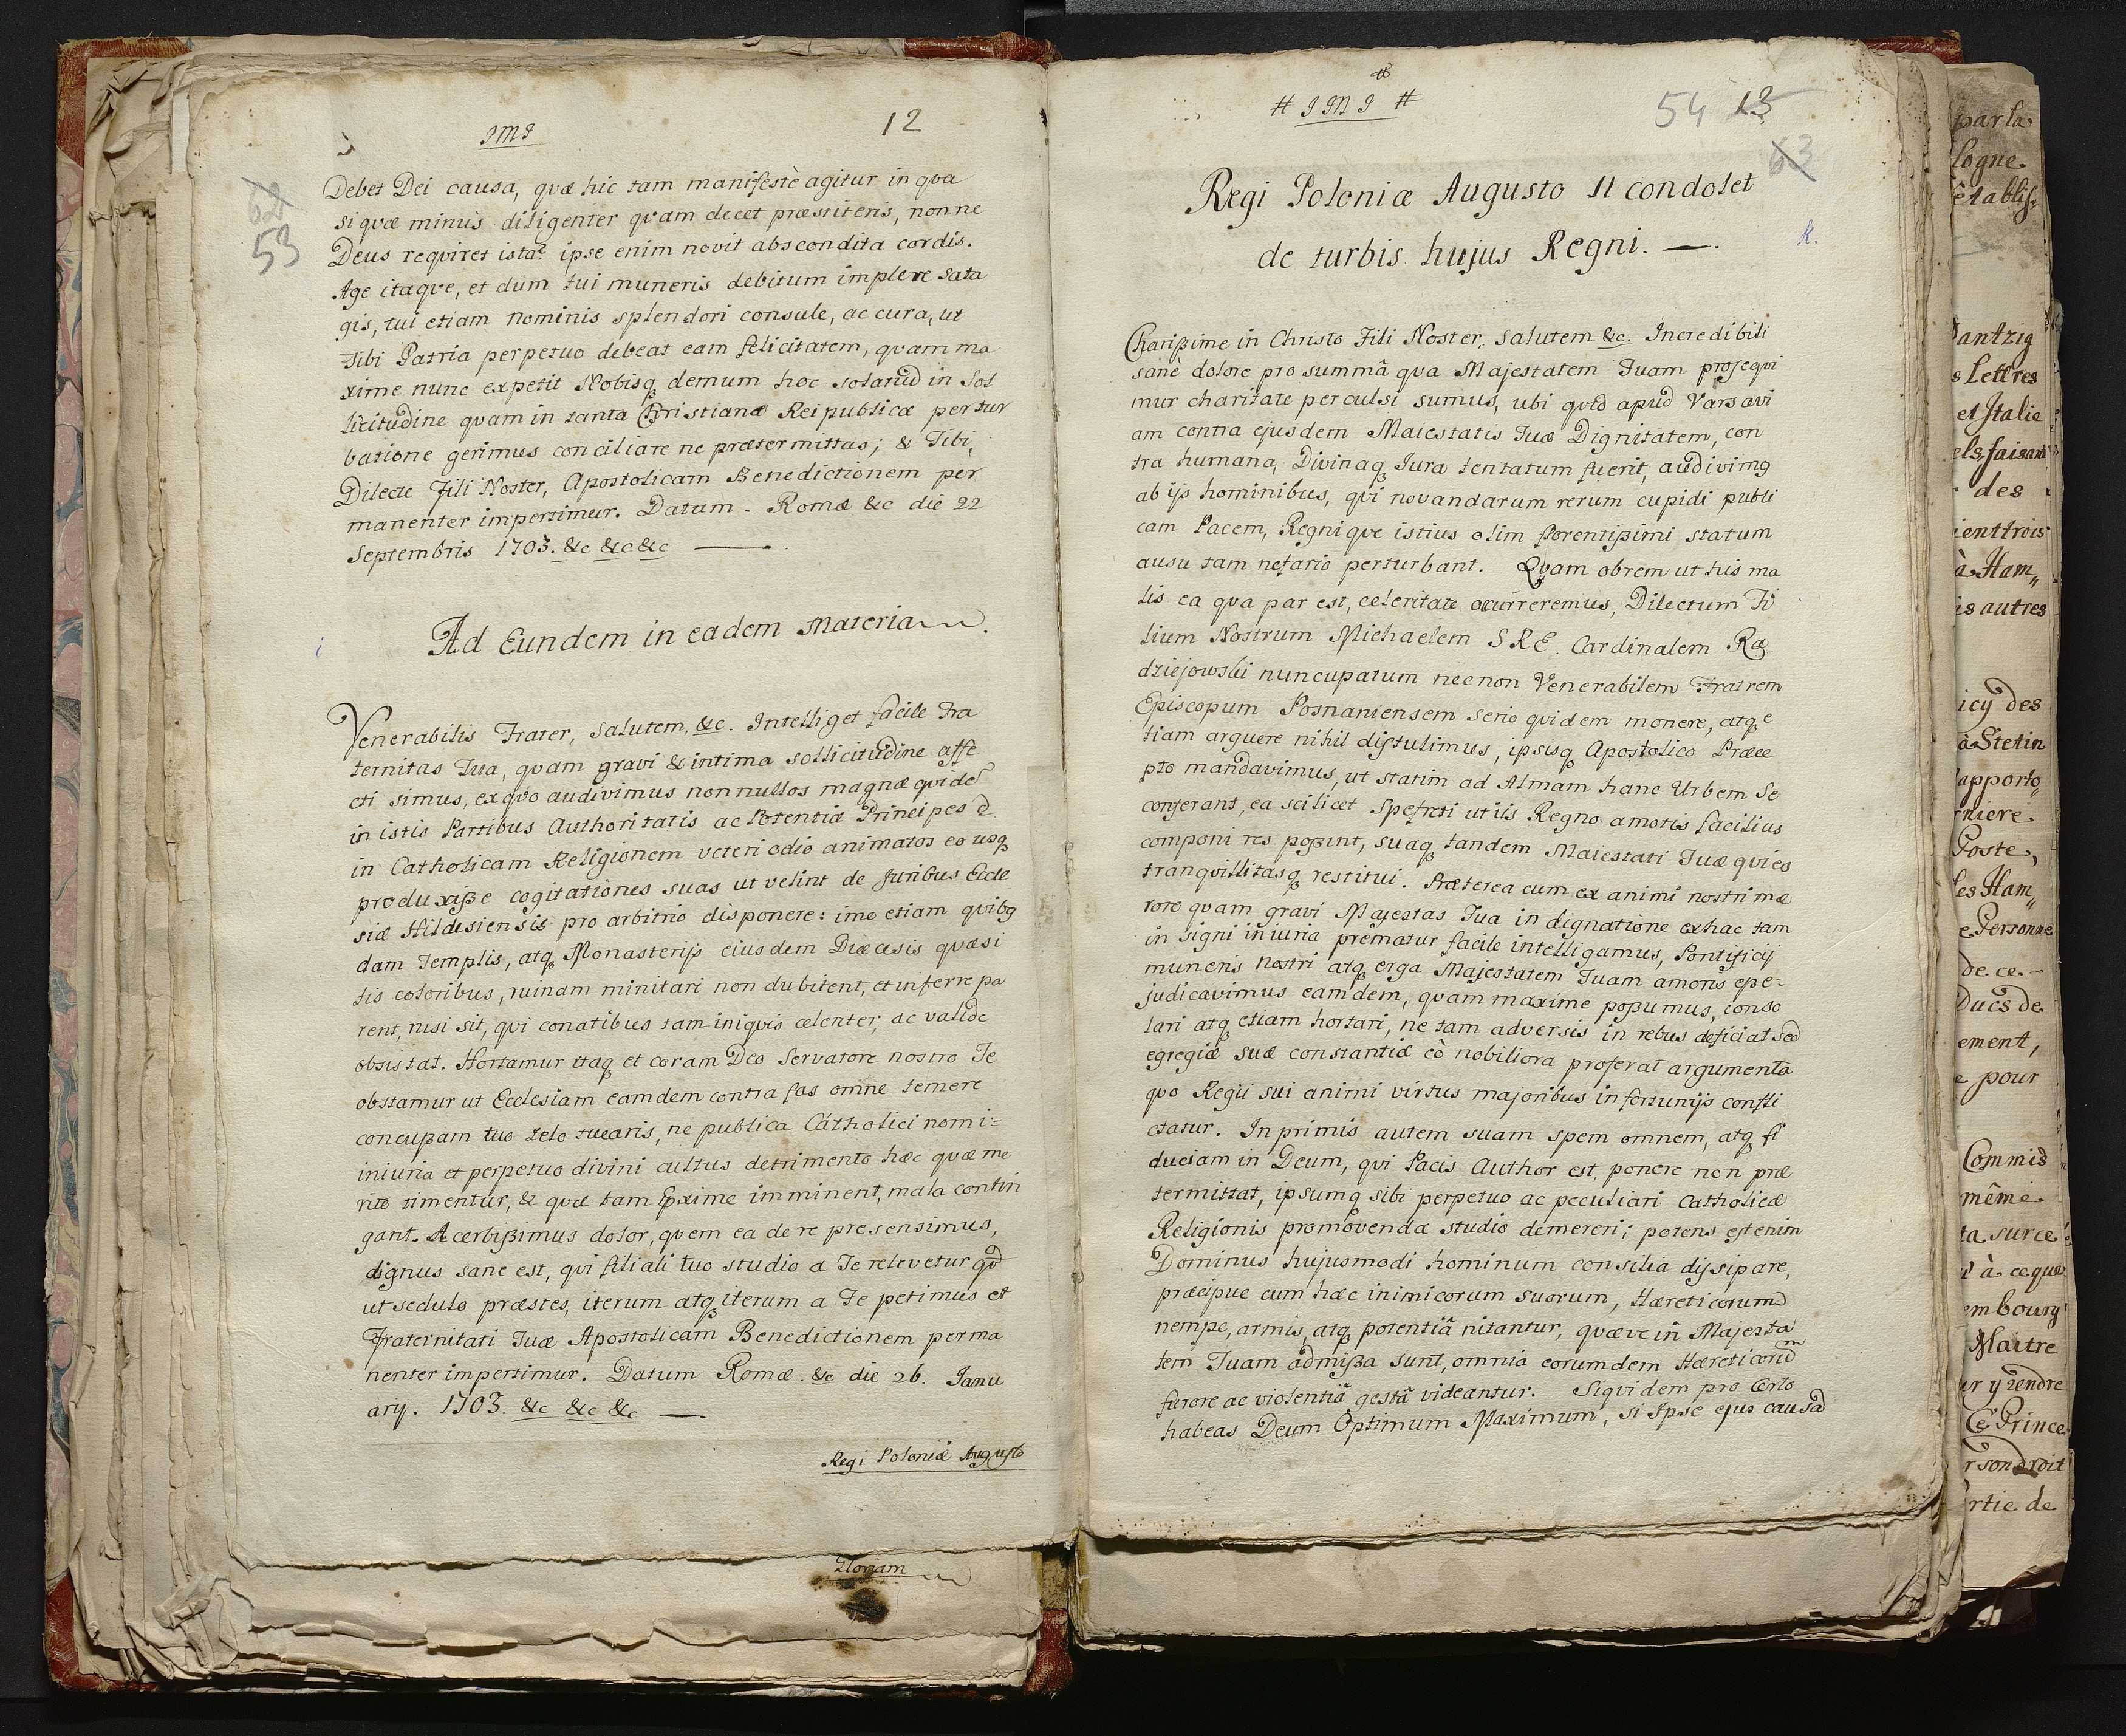 JMJ
12
62
53
Debet Dei causa, quæ hic tam manifestè agitur in qva
si quæ minus diligenter qvam decet præstiteris, nonne
Deus reqviret ista? ipse enim novit abscondita cordis.
Age itaqve, et dum tui muneris debitum implere sata
gis, tui etiam nominis splendori consule, ac cura, ut
Tibi Patria perpetuo debeat eam felicitatem, quam ma
xime nunc expetit Nobisq demum hoc solatiũ in sol
licitudine quam in tanta Christianæ Reipublicæ pertur
batione gerimus conciliare ne prætermittas; & Tibi,
Dilecte Fili Noster, Apostolicam Benedictionem per
manenter impertimur. Datum. Romæ &c die 22
Septembris 1703. &c &c &c —
Ad Eundem in eadem Materia.
Venerabilis Frater, salutem, &c. Intelliget facile Fra
ternitas Tua, qvam gravi & intima sollicitudine affe
cti simus, ex qvo audivimus nonnullos magnæ qvidē
in istis Partibus Authoritatis ac Potentiæ Principes
in Catholicam Religionem veteri odio animatos eo usq
produxiße cogitationes suas ut velint de Juribus Eccle
siæ Hildesiensis pro arbitrio disponere: imo etiam qvibq
dam Templis, atq Monasterijs eiusdem Diæcesis quæsi
tis coloribus, ruinam minitari non dubitent, et inferre pa
rent, nisi sit, qvi conatibus tam iniqvis celenter, ac valide
obsistat. Hortamur itaq et coram Deo Servatore nostro Te
obstamur ut Ecclesiam eamdem contra fas omne temere
concupam tuo zelo tuearis, ne publica Catholici nomi=
iniuria et perpetuo divini cultus detrimento hæc quæ me
rito timentur, & quæ tam pxime imminent, mala contin
gant. Acerbißimus dolor, qvem ea de re presensimus,
dignus sane est, qvi filiali tuo studio a Te relevetur qd
ut sedulo præstes, iterum atq iterum a Te petimus et
Fraternitati Tuæ Apostolicam Benedictionem perma
nenter impertimur. Datum Romæ. &c die 26. Janu
arij. 1703. &c &c &c —
Regi Poloniæ Augusto
Gloriam
# JMJ #
54 13
63
Regi Poloniæ Augusto II condolet
de turbis hujus Regni. —.
k.
Charißime in Christo Fili Noster, salutem &c. Incredibili
sanè dolore pro summâ qva Majestatem Tuam proseqvi
mur charitate perculsi sumus, ubi qvid apud Varsavi
am contra ejusdem Maiestatis Tuæ Dignitatem, con
tra humana, Divinaq Jura tentatum fuerit, audivimq
ab ijs hominibus, qvi novandarum rerum cupidi publi
cam Pacem, Regniqve istius olim florentißimi statum
ausu tam nefario perturbant. Qvam obrem ut his ma
lis ea qva par est, celeritate occurreremus, Dilectum Fi
lium Nostrum Michaelem S R E. Cardinalem Ra
dziejowski nuncupatum necnon Venerabilem Fratrem
Episcopum Posnaniensem serio qvidem monere, atq e
tiam arguere nihil distulimus, ipsisq Apostolico Præce
pto mandavimus, ut statim ad Almam hanc Urbem se
conferant, ea scilicet spe freti ut iis Regno amotis facilius
componi res poßint, suaq tandem Maiestati Tuæ qvies
tranqvillitasq restitui. Præterea cum ex animi nostri mæ
rore qvam gravi Majestas Tua indignatione ex hac tam
insigni iniuria prematur facile intelligamus, Pontificij
muneris nostri atq erga Majestatem Tuam amoris eße-
judicavimus eamdem, qvam maxime poßumus, conso
lari atq etiam hortari, ne tam adversis in rebus deficiat sed
egregiæ suæ constantiæ eò nobiliora proferat argumenta
qvo Regii sui animi virtus majoribus infortunijs confli
ctatur. In primis autem suam spem omnem, atq fi
duciam in Deum, qvi Pacis Author est, ponere non præ
termittat, ipsumq sibi perpetuo ac peculiari Catholicæ
Religionis promovendæ studio demereri; potens est enim
Dominus hujusmodi hominum consilia dissipare,
præcipue cum hæc inimicorum suorum, Hæreticorum
nempe, armis, atq potentiâ nitantur, quæve in Majesta
tem Tuam admißa sunt, omnia eorumdem Hæreticorũ
furore ac violentiâ gesta videantur. Siqvidem pro Certo
habeas Deum Optimum Maximum, si Ipse ejus causâ
par la
logne.
établis-
antzig
s Lettres
et Italie
els faisant
des
ient trois
à Ham„
is autres
icy des
à Stetin
apporto„
rniere.
Poste,
les Ham„
e Personne
de ce-
Ducs de
ement,
e pour
Commis
même
ta sur ce
à ce que
embourg
Maitre
er y rendre
Ce Prince
r son droit
rtie de